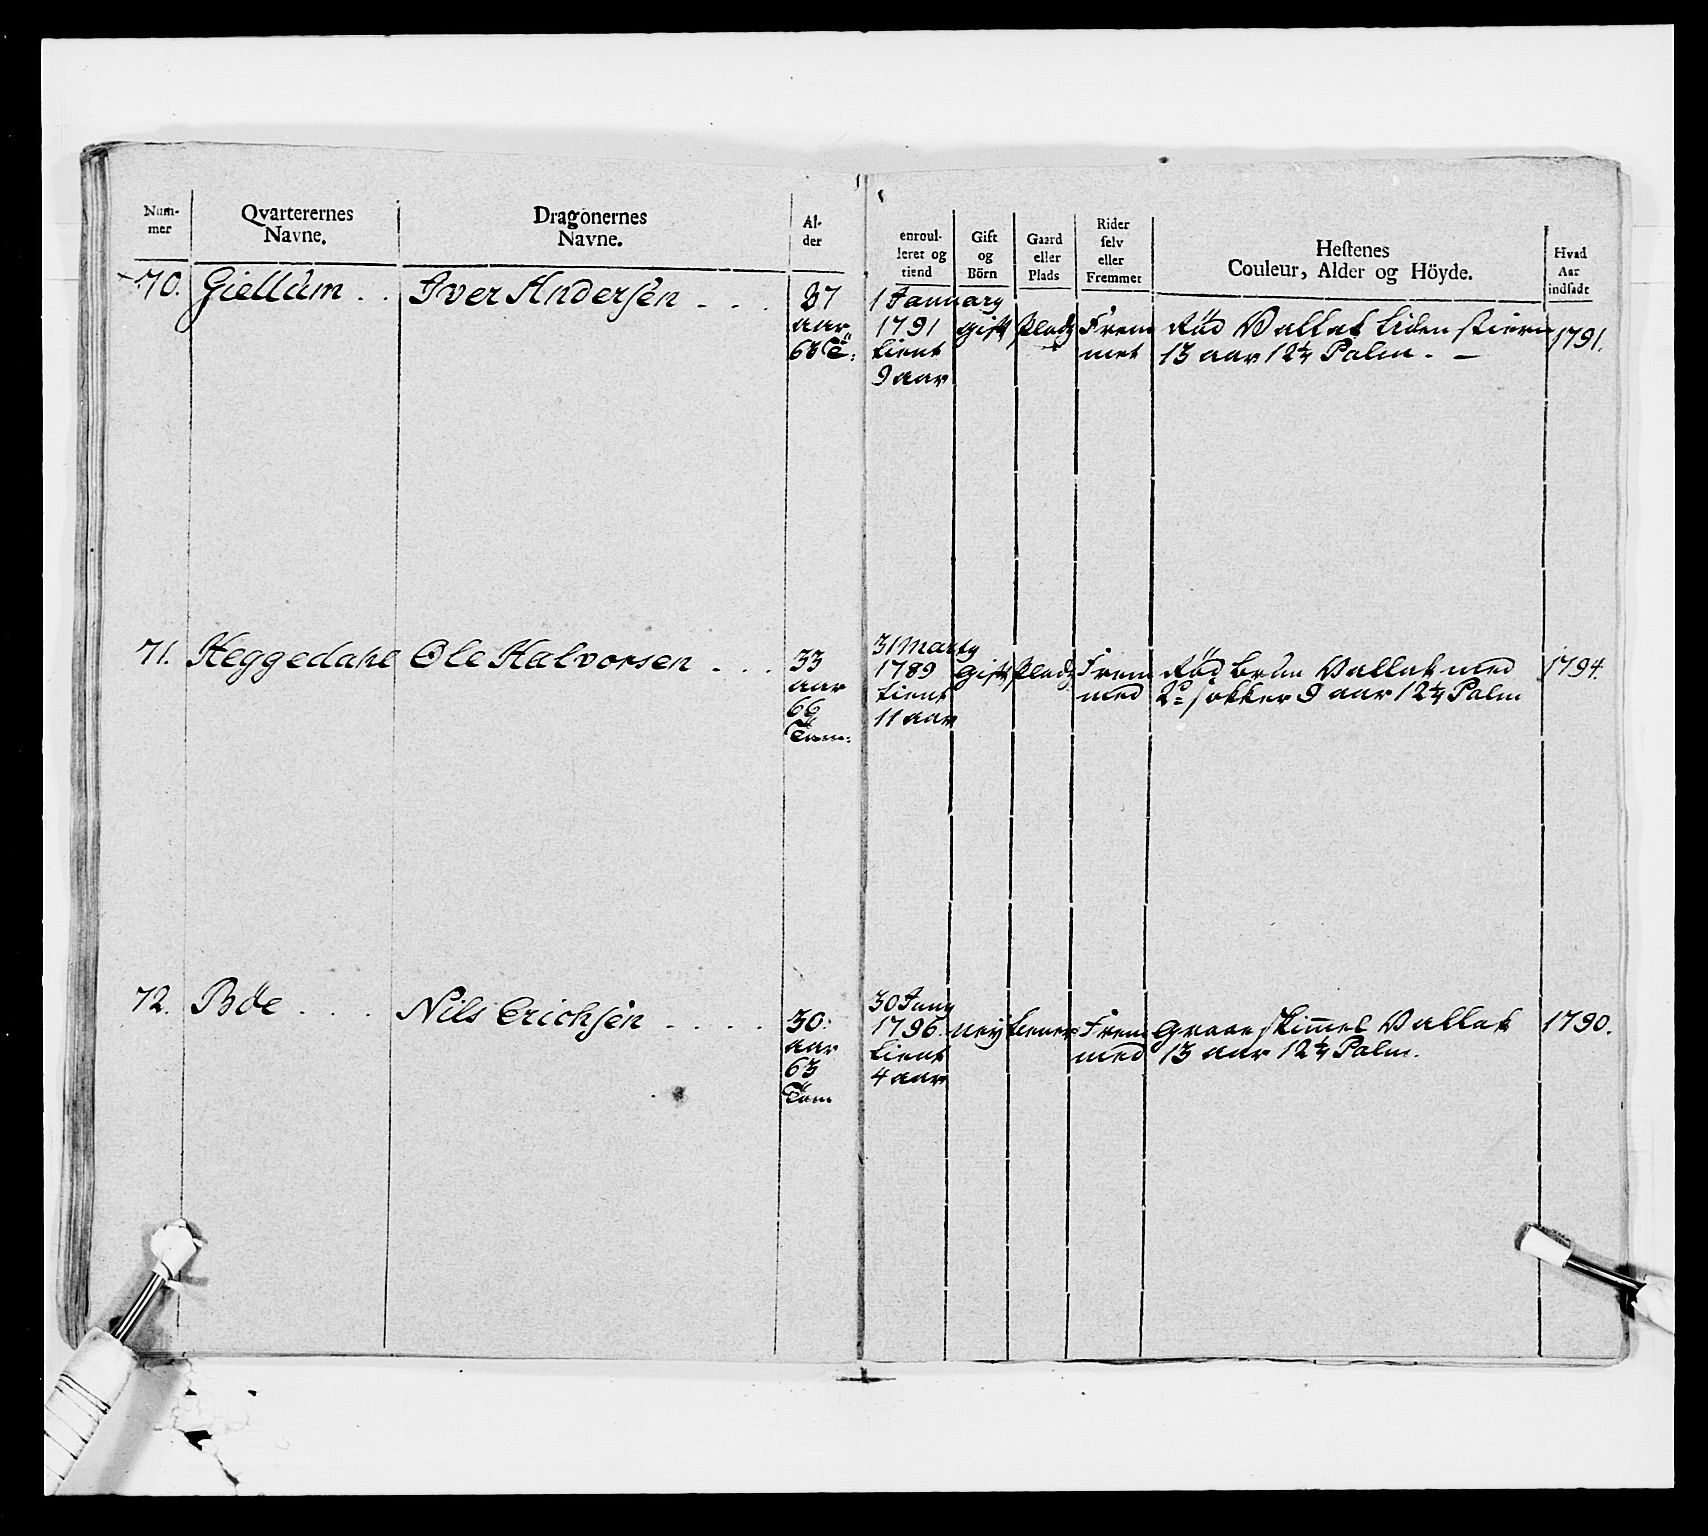 Num-
mer
Qvarterernes
Navne.
Dragonernes
Navne.
Al-
der
enroul-
leret og
tiend
Gift
og
Börn
Gaard
eller
Plads
Rider
selv
eller
Fremmet
Hestenes
Couleur, Alder og Höyde.
Hvad
Aar
indsadt
70. Giellum . . Iver Andersen . . .
37
aar
63 T:
1 January
1791
tient
9 aar
Gift
Pladz
Frem
met
Rød Vallak liden stiern
13 aar 12¼ Palm. —
1791.
71. Heggedahl Ole Halvorsen . . .
33
aar
66
Tom:
31 Marty
1789
tient
11 aar
Gift
Pladz
Frem
med
Rød brun Vallak med
2de sokker 9 aar 12¼ Palm
1794.
72. Böe . . . Nils Erichsen . . . .
30.
aar
63
Tom
30 Juny
1796
tient
4 aar
Ney
tiener
Frem
med
Graae skimmel Vallak
13 aar 12¼ Palm.
1790.